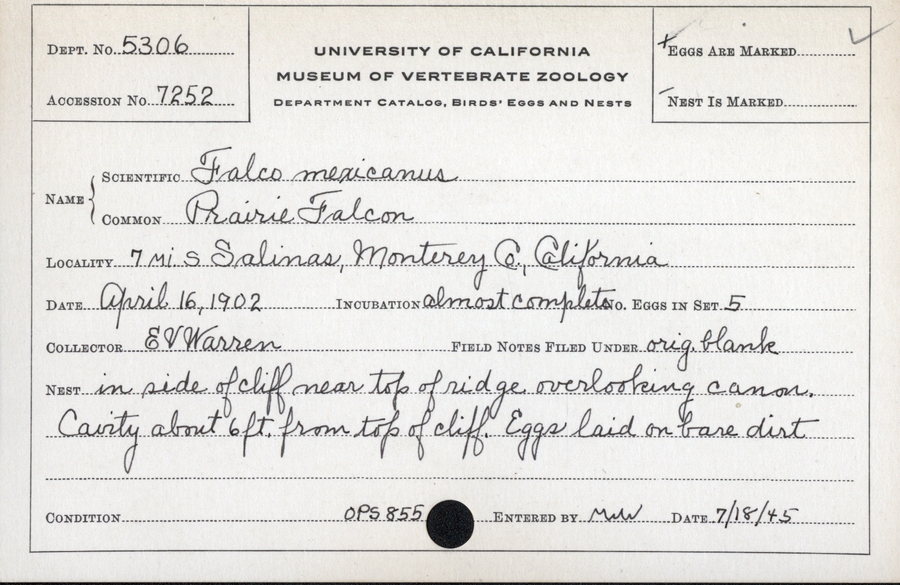 DEPT. NO. 5306
ACCESSION NO. 7252
UNIVERSITY OF CALIFORNIA
MUSEUM OF VERTEBRATE ZOOLOGY
DEPARTMENT CATALOG, BIRDS' EGGS AND NESTS
EGGS ARE MARKED
NEST IS MARKED
NAME
SCIENTIFIC Falco mexicanus
COMMON Prairie Falcon
LOCALITY 7 mi S Salinas, Monterey Co., California
DATE April 16, 1902 INCUBATION almost complete NO. EGGS IN SET 5
COLLECTOR E V Warren FIELD NOTES FILED UNDER orig. blank
NEST in side of cliff near top of ridge overlooking canon.
Cavity about 6 ft. from top of cliff. Eggs laid on bare dirt
CONDITION OPS 855 ENTERED BY DATE 7/18/45